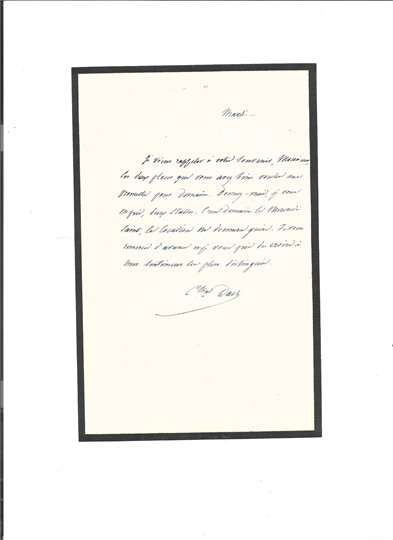 Mardi.
Je viens rappeler à votre souvenir, Monsieur,
les deux places que vous avez bien voulu me
promettre pour demain. Donnez-moi, je vous
en prie, deux stalles. C'est demain le Mercredi
Saint, la location ne donnera guère. Je vous
remercie d'avance et vous prie de croire à
mes sentiments les plus distingués.
Ctesse Dash